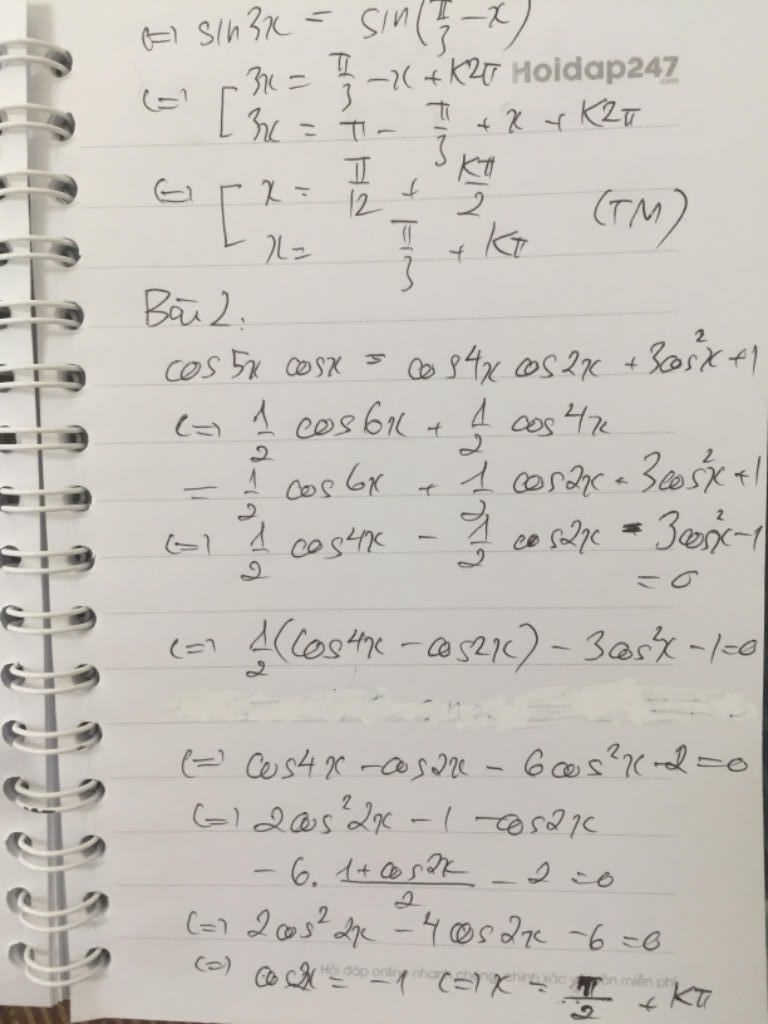 ⇔ sin3x = sin(π/3 - x)
Hoidap247
.com
⇔ [ 3x = π/3 - x + K2π
3x = π - π/3 + x + K2π
⇔ [ x = π/12 + Kπ/2
x = π/3 + Kπ (TM)
Bài 2.
cos5x cosx = cos4x cos2x + 3cos²x + 1
⇔ 1/2 cos6x + 1/2 cos4x
= 1/2 cos6x + 1/2 cos2x + 3cos²x + 1
⇔ 1/2 cos4x - 1/2 cos2x - 3cos²x - 1
= 0
⇔ 1/2 (cos4x - cos2x) - 3cos²x - 1 = 0
⇔ cos4x - cos2x - 6cos²x - 2 = 0
⇔ 2cos²2x - 1 - cos2x
- 6. (1 + cos2x)/2 - 2 = 0
⇔ 2cos²2x - 4cos2x - 6 = 0
Hỏi đáp online nhanh chóng, chính xác và luôn miễn phí
⇔ cos2x = -1 ⇔ x = π/2 + Kπ